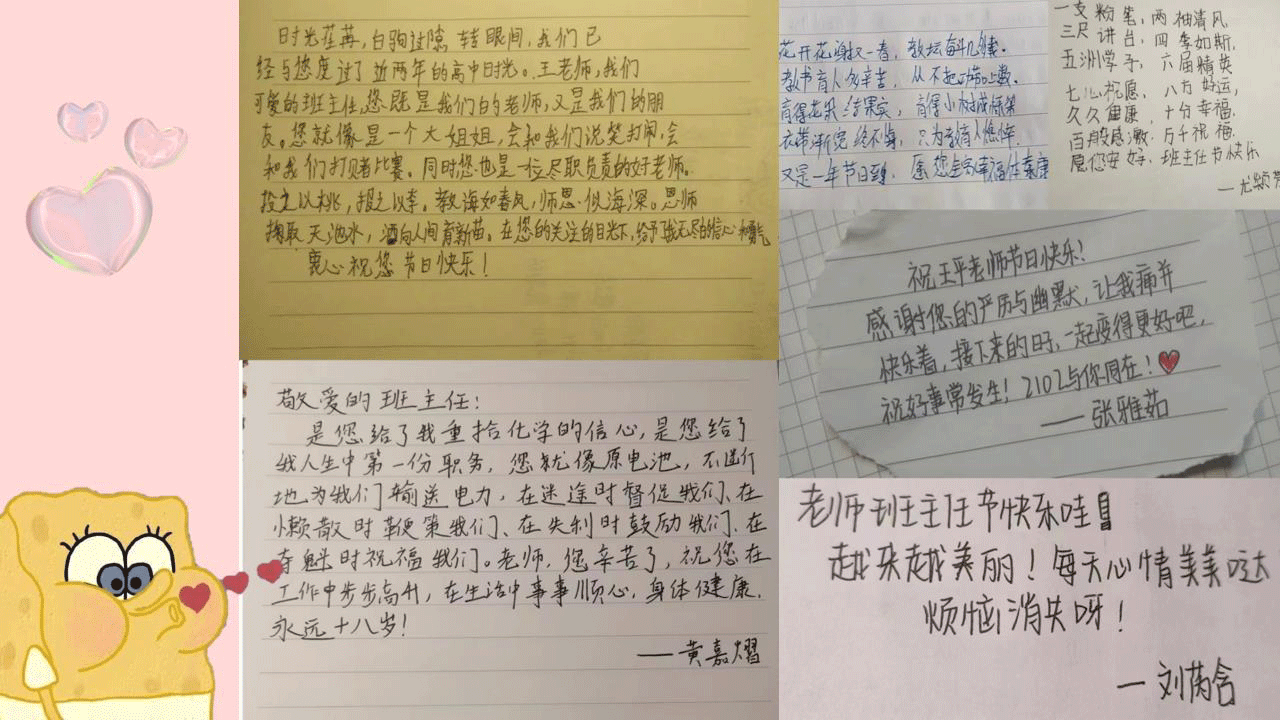 时光荏苒，白驹过隙，转眼间，我们已
经与您度过了近两年的高中时光。王老师，我们
可爱的班主任，您既是我们的老师，又是我们的朋
友。您就像是一个大姐姐，会和我们说笑打闹，会
和我们打赌比赛。同时您也是一位尽职负责的好老师。
投之以桃，报之以李。教诲如春风，师恩似海深。恩师
掬取天池水，洒向人间育新苗。在您的关注的目光下，给予了我无尽的信心和勇气
衷心祝您节日快乐！
花开花谢又一春，教坛奋斗几
教书育人多辛苦，从不起功
育得花朵结果实，育得小树成栋
衣带渐宽终不悔，只为教育人憔悴。
又是一年节日到，愿您生活幸福体康
一支粉笔，两袖清风，
三尺讲台，四季如斯，
五洲学子，六届精英
七心祝愿，八方好运，
久久健康，十分幸福，
百般感激，万千祝福，
愿您安好，班主任节快乐
祝王平老师节日快乐！
感谢您的严厉与幽默，让我痛并
快乐着，接下来的日子，一起变得更好吧，
祝好事常发生！2102与你同在！
——张雅茹
敬爱的班主任：
是您给了我重拾化学的信心，是您给了
我人生中第一份职务，您就像原电池，不逆行
地为我们输送电力，在迷途时督促我们、在
懒散时鞭策我们、在失利时鼓励我们、在
夺魁时祝福我们。老师，您辛苦了，祝您在
工作中步步高升，在生活中事事顺心，身体健康，
永远十八岁！
——黄嘉熠
老师班主任节快乐哇！
越来越美丽！每天心情美美哒
烦恼消失呀！
—刘芮含